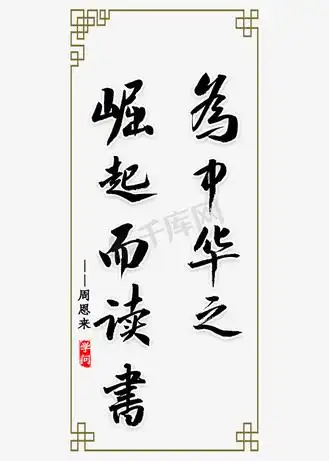 為中华之
崛起而读書
——周恩来
学问
千库网